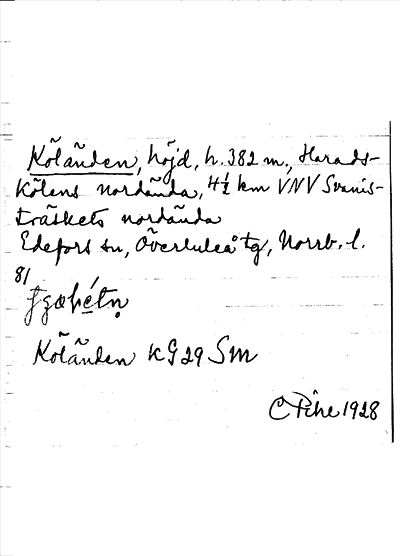 Köländen, höjd, h. 382 m., Harads-
kölens nordända, 4½ km VNV Svanis-
träskets nordända
Edefors sn, Överluleå tg, Norrb. l.
81
Köländen KG 29 Sm
C Pihe 1928